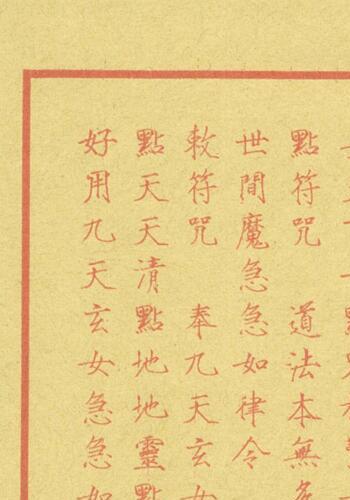 點符咒　道法本無
世間魔急急如律令
敕符咒　奉九天玄女
點天天清點地地靈點
好用九天玄女急急如